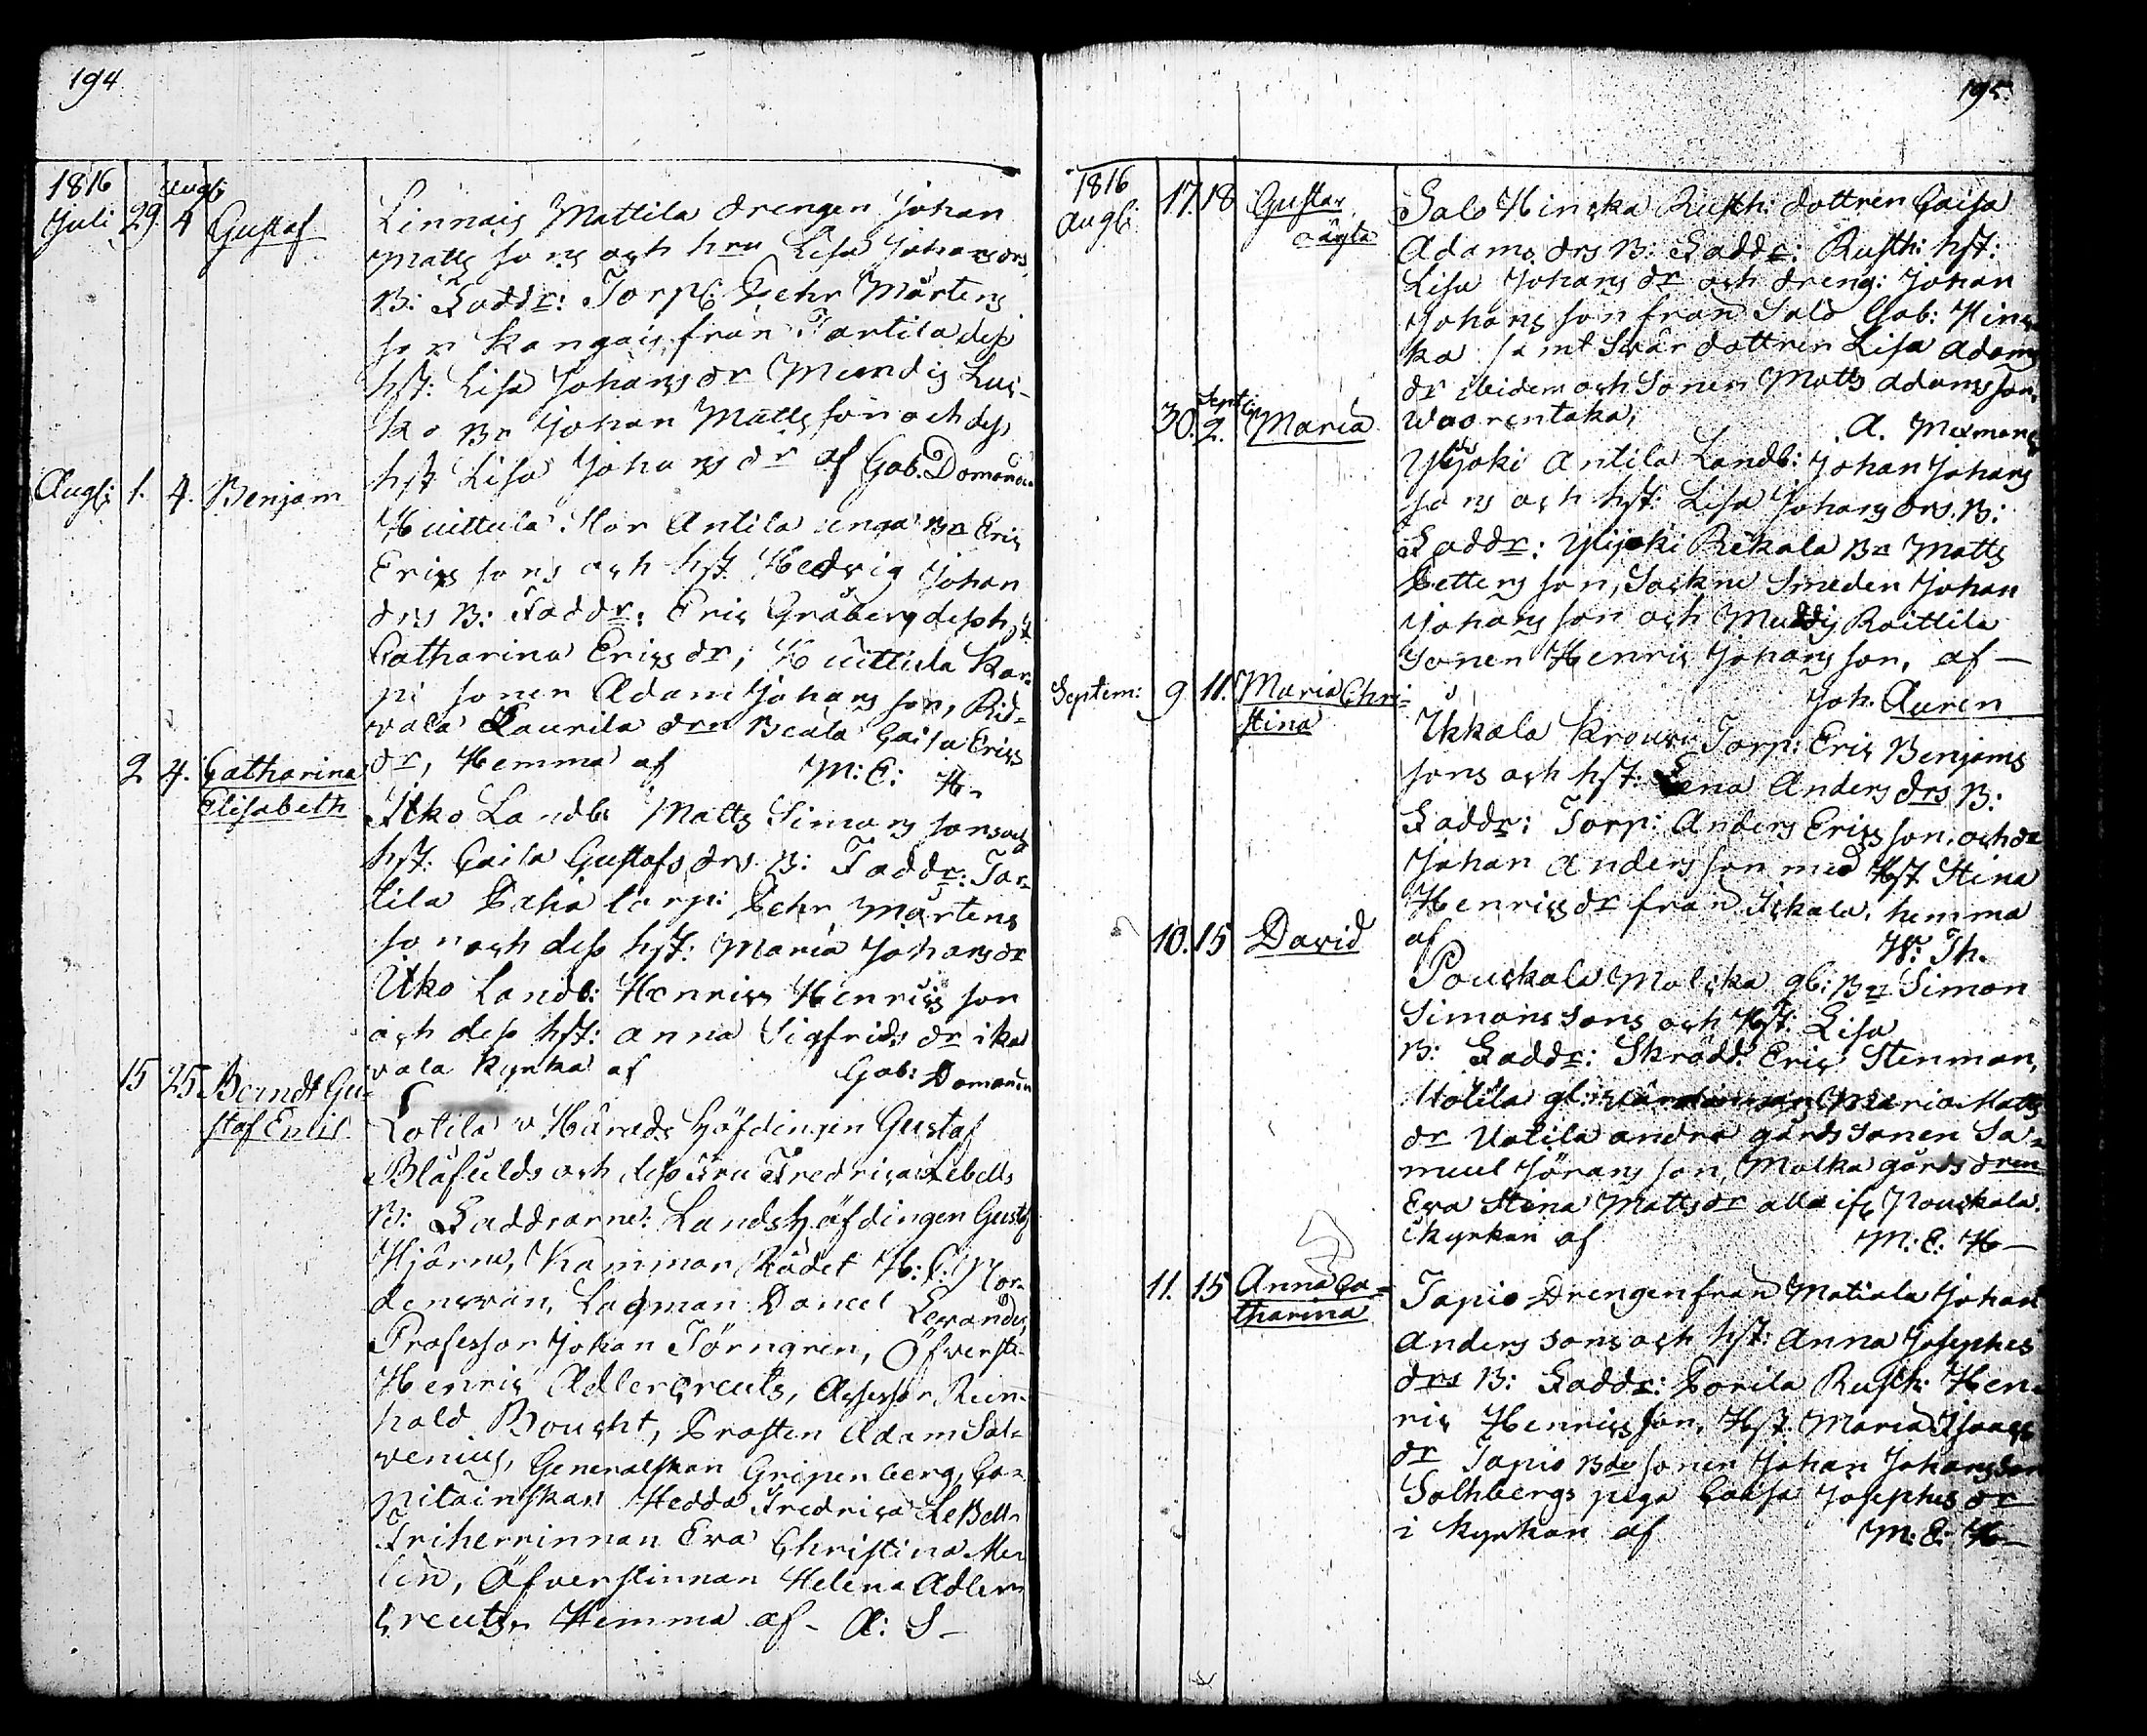 194
1816 Augti
Juli 29. 4 Gustaf
Linnais Mattila drengen Johan
Matts sons och hru Lisa Johansdrs
B: Faddr: Torp: Pehr Mårtens
son Kangais från Tartila dess
hst: Lisa Johans dr Mundig Lui-
ko Bn Johan Matts son och dess
hst Lisa Johans dr af Gab. Domand
Augti 1. 4. Benjam
Huittula Kor Antila unga Bn Eric
Erics sons och hst. Hedvig Johan
drs B: Faddr: Eric Gråberg dess hst
Catharina Erics dr, Huittula Kar-
pi sonen Adam Johans son, Rid-
vala Laurila drn Beata Caisa Erics
dr, Hemma af M: E: H-
2 4. Catharina
Elisabeth
Itko Landb: Matts Simons sons och
hst: Caisa Gustafs drs B: Faddr: Tar-
tila torp: Pehr Mårtens
son och dess hst: Maria Johans dr
Utko Landb: Henrics Henrics son
och dess hst: Anna Sigfrids dr i ka
vala Kyrka af Gab: Domand
15 25 Berndt Gu-
staf Emil
Lotila v Härads Höfdingen Gustaf
Blåfields och dess Fru Fredrica Lebells
B: Faddrarne: Landshöfdingen Gustaf
Hjärne, Kammar Rådet H: C: Nor-
densvan, Lagman Daniel Levander,
Professor Johan Törngren, Öfverste
Henric Adlercreuts, Assessor Rein-
hold Boucht, Prosten Adam Sal-
venius, Generalskan Gripenberg, Ca-
pitainskan Hedda Fredrica LeBell
Friherrinnan Eva Christina Mel
lin, Öfverstinnan Helena Adler
creutz, Hemma af - A: S-
195
1816
Augti 17. 18 Gustav
oägta
Salo Hinska Rusth: dottren Caisa
Adams drs B: Faddr: Rusth: hst:
Lisa Johans dr och dreng: Johan
Johans son från Salo Gab: Hins
ka samt Svär dottren Lisa Adams
dr ibidem och Sonen Matts Adams son
Woorentaka; A. Mexmon
Septi
30. 2. Maria
Ylijoki Antila Landb: Johan Johans
sons och hst: Lisa Johans drs. B:
Faddr: Ylijoki Rekala Bn Matts
Petters son, Sockne Smeden Johan
Johans son och Muddig Raittila
Sonen Henric Johans son, af -
Joh. Auren
Septem: 9 11. Maria Chri-
stina
Ukkala Krouvi Torp: Eric Benjams
sons och hst: Lena Anders drs B:
Faddr: Torp: Anders Erics son, och dr
Johan Anders son med Hst Stina
Henrics dr från Ickala, hemma
af H: Th.
10. 15 David
Pouckala Molska gl: Bn Simon
Simons sons och Hst: Lisa
B: Faddr: Skrädd: Eric Stenman,
Uotila gl: Maria Matts
dr Uotila andra gårds sonen Sa-
muel Jörans son, Molka gårds dren
Eva Stina Matts dr alla ifr Pouckala.
i Kyrkan af M: E: H-
11. 15 Anna Ca-
tharina
Tapio Drengen från Matiala Johan
Anders sons och hst: Anna Josephes
drs B: Faddr: Porila Rusth: Hen
ric Henrics son, Hst. Maria Isaacs
dr Tapio Bde sonen Johan Johansson
Sathbergs piga Caisa Josephus dr
i kyrkan af M: E: H-